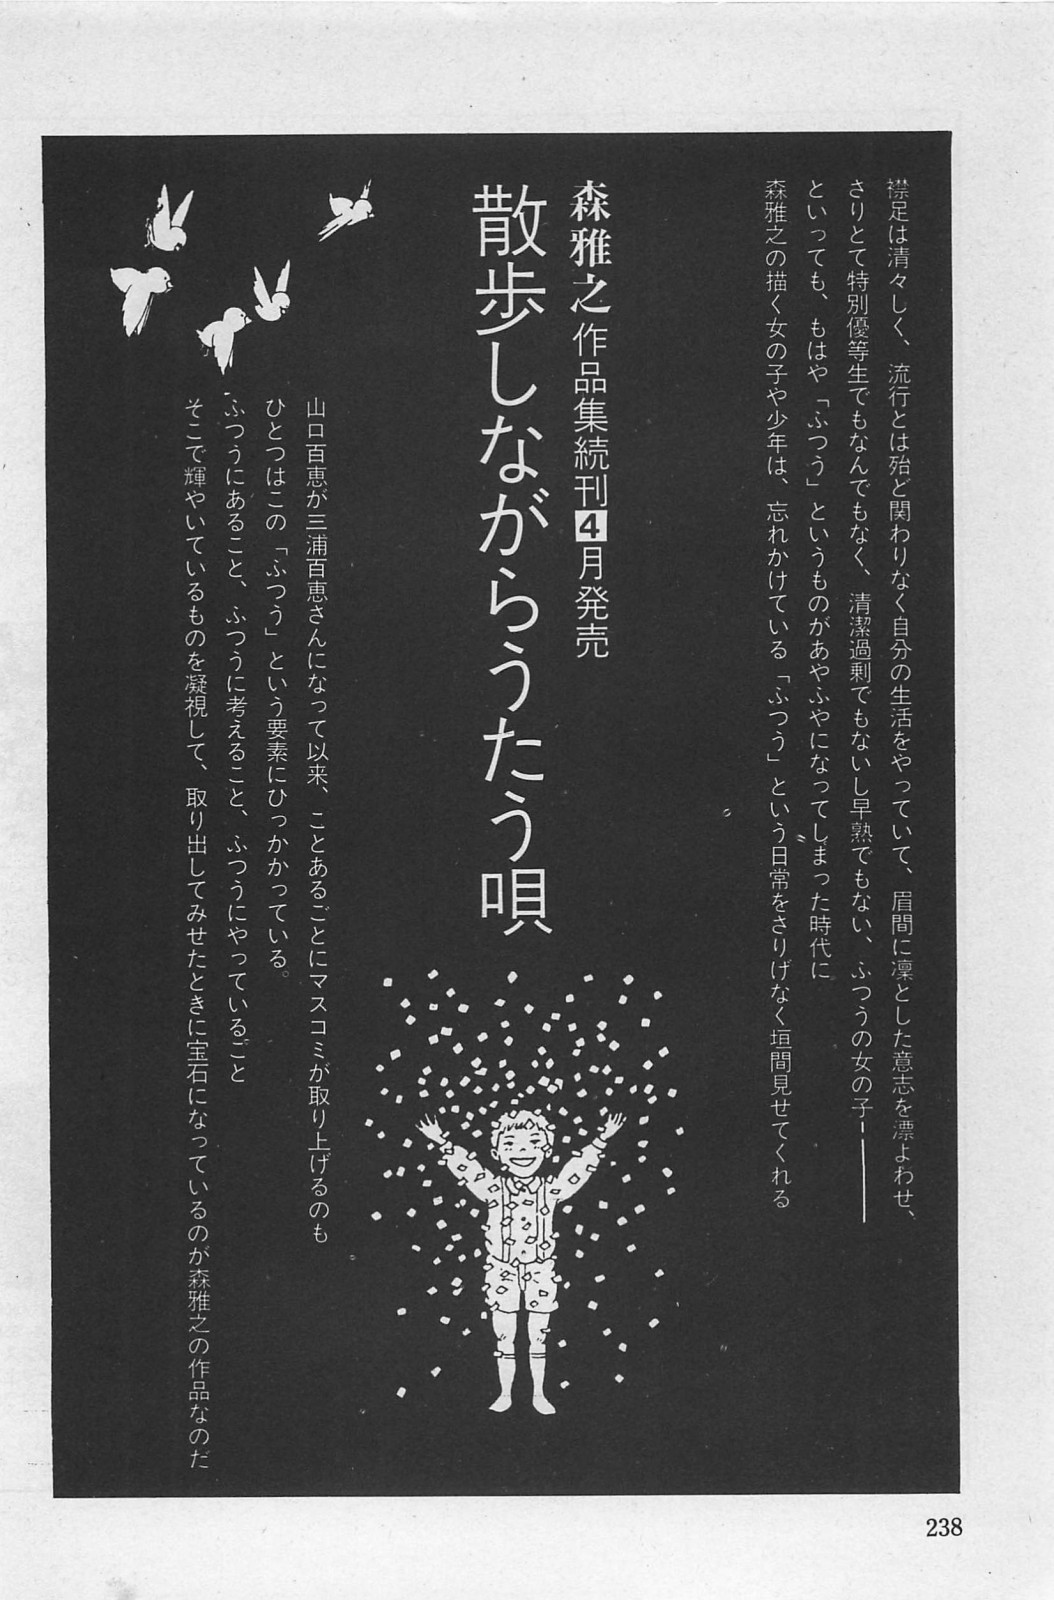 襟足は清々しく、流行とは殆ど関わりなく自分の生活をやっていて、眉間に凛とした意志を漂よわせ、
さりとて特別優等生でもなんでもなく、清潔過剰でもないし早熟でもない、ふつうの女の子――
といっても、もはや「ふつう」というものがあやふやになってしまった時代に
森雅之の描く女の子や少年は、忘れかけている「ふつう」という日常をさりげなく垣間見せてくれる
森雅之作品集続刊4月発売
散歩しながらうたう唄
山口百恵が三浦百恵さんになって以来、ことあるごとにマスコミが取り上げるのも
ひとつはこの「ふつう」という要素にひっかかっている。
ふつうにあること、ふつうに考えること、ふつうにやっているごと
そこで輝やいているものを凝視して、取り出してみせたときに宝石になっているのが森雅之の作品なのだ
238